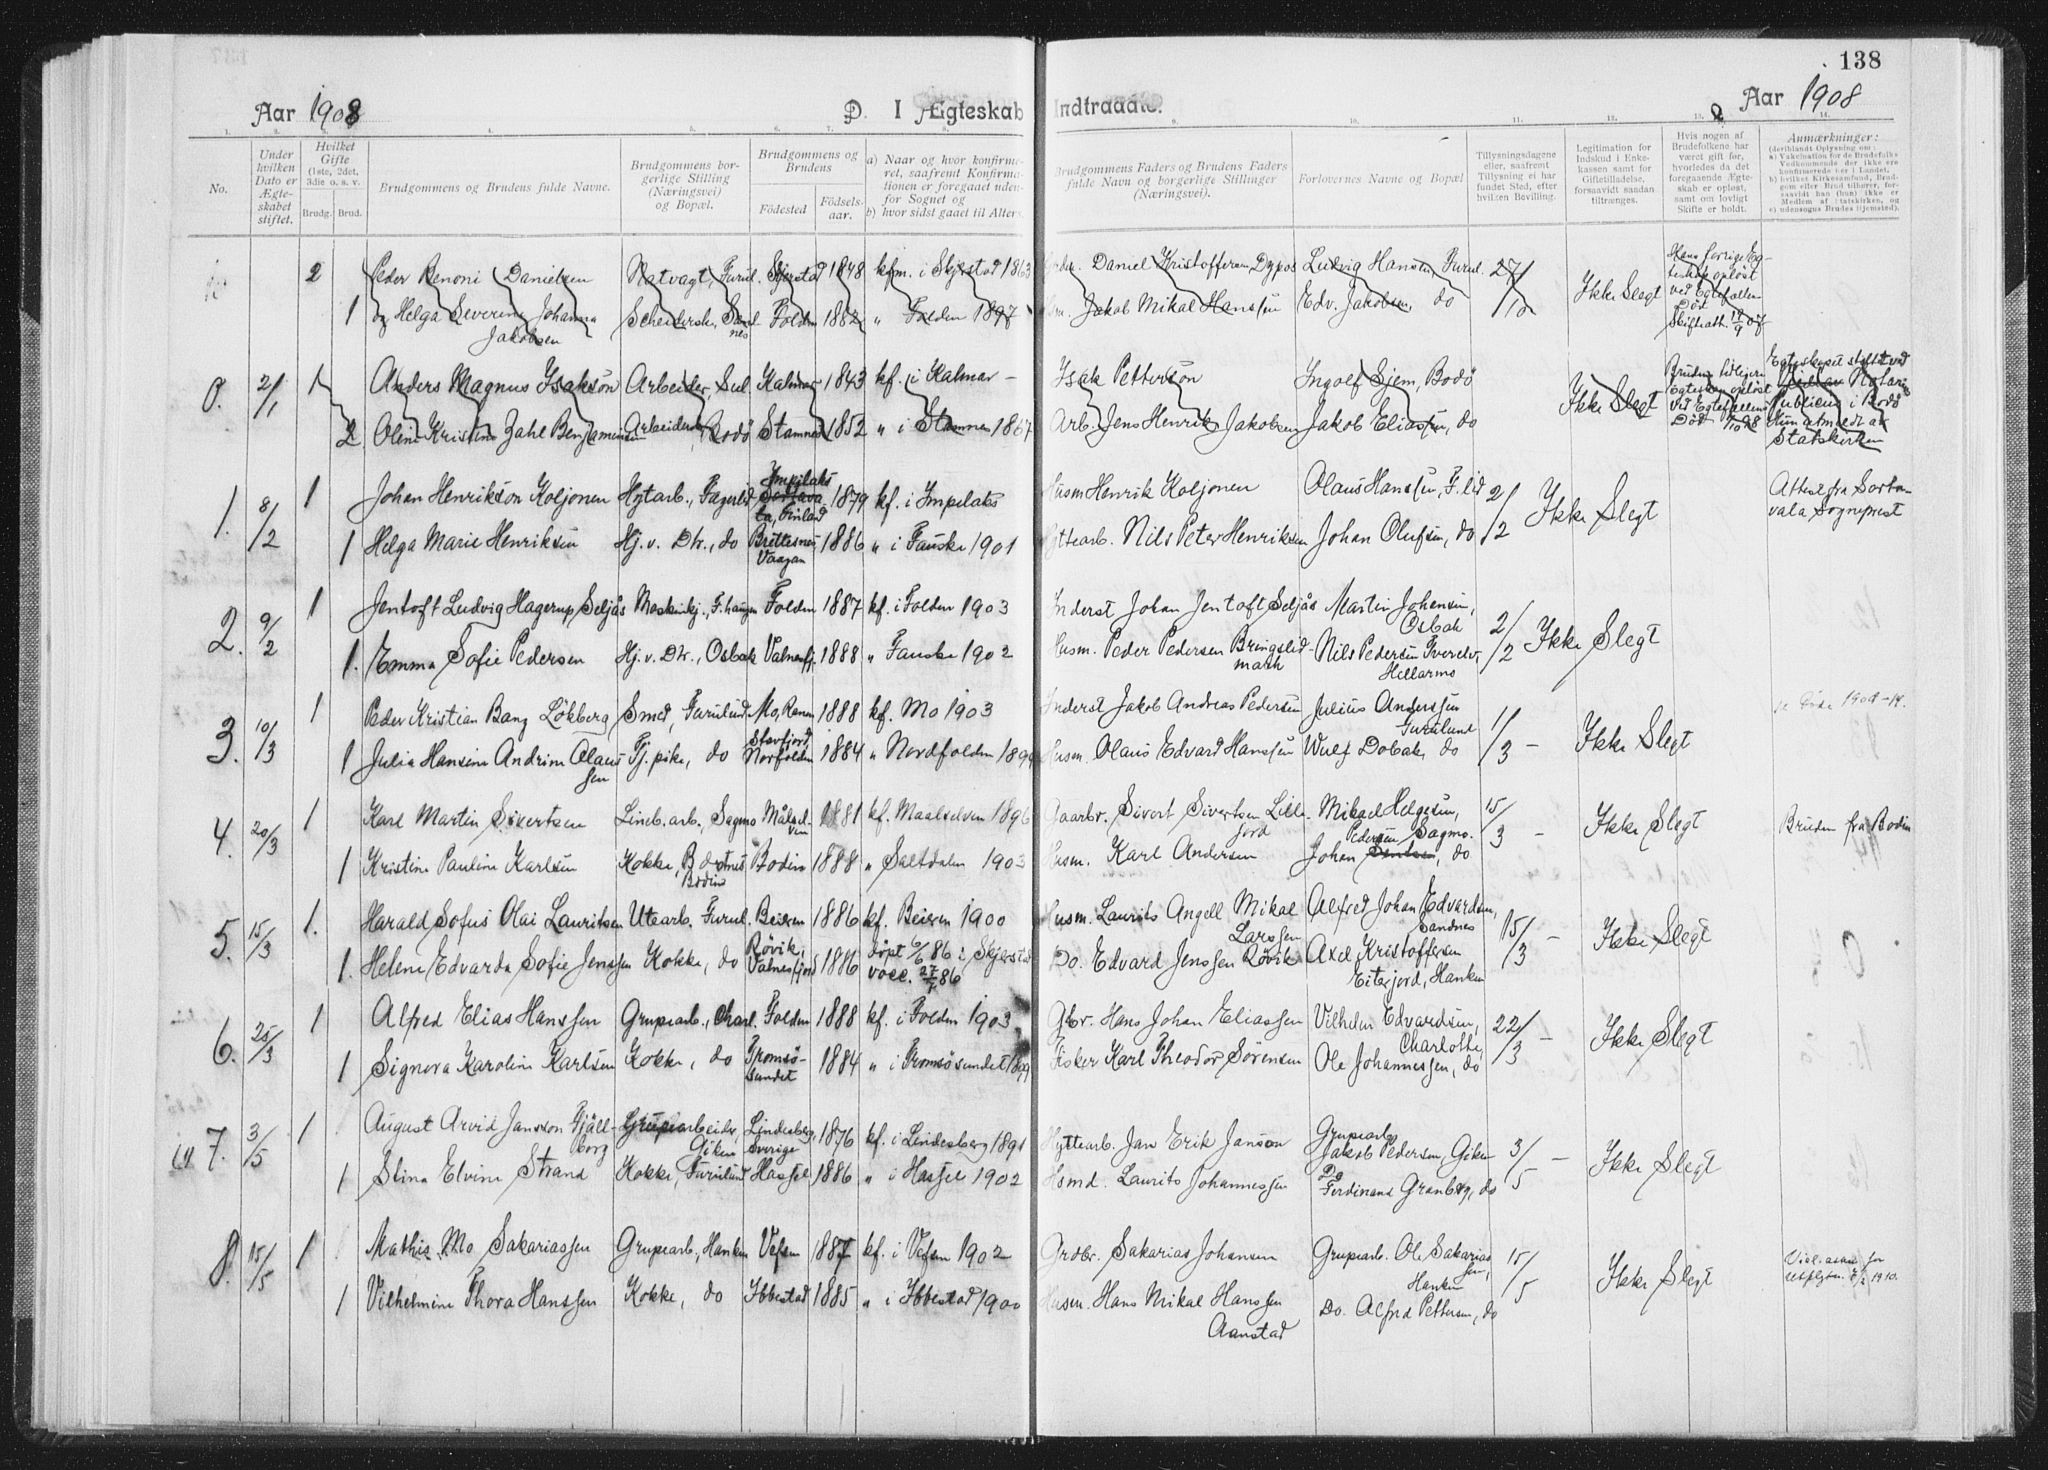 138
Aar 1908 D. I Ægteskab Indtraadte. Aar 1908
1. 2. 3. 4. 5. 6. 7. 8. 9. 10. 11. 12. 13. 14.
No.
Under hvilken Dato er Ægteskabet stiftet.
Hvilket Gifte (1ste, 2det, 3die o. s. v.
Brudg. Brud.
Brudgommens og Brudens fulde Navne.
Brudgommens borgerlige Stilling (Næringsvei) og Bopæl.
Brudgommens og Brudens
Födested Födselsaar.
a) Naar og hvor konfirmeret, saafremt Konfirmationen er foregaaet udenfor Sognet og
b) hvor sidst gaaet til Alters
Brudgommens Faders og Brudens Faders fulde Navn og borgerlige Stillinger (Næringsvei).
Forlovernes Navne og Bopæl
Tillysningsdagene eller, saafremt Tillysning ei har fundet Sted, efter hvilken Bevilling.
Legitimation for Indskud i Enkekassen samt for Giftetilladelse, forsaavidt saadan tiltrænges.
Hvis nogen af Brudefolkene har været gift før, hvorledes da det foregaaende Ægteskab er opløst, samt om lovligt Skifte er holdt.
Anmærkninger:
(deriblandt Oplysning om:
a) Vakcination for de Brudefolks Vedkommende der ikke ere konfirmerede her i Landet,
b) hvilket Kirkesamfund, Brudgom eller Brud tilhører, forsaavidt han (hun) ikke er Medlem af Statskirken, og
c) udensogns Brudes Hjemsted).
2 Peder Benoni Danielsen Natvagt, Furul. Skjerstad 1848 kfm. i Skjerstad 1863 Daniel Kristoffersen Dypos Ludvig Hansen, Furul. 27/12 Ikke Slegt Hans forrige Egteskab opløst ved Egtefællens Död Skifteatt. 19/9 07
1 og Helga Severine Johanna Jakobsen Folden 1882 " Folden 1897 Jakob Mikal Hanssen Edv. Jakobsen, do
0. 2/1 1 Anders Magnus Isakson Arbeider, Sul. Kalmar 1843 kf. i Kalmar - Isak Petterson Ingolf Sjem, Bodö Ikke Slegt
2 Oline Kristine Zahl Benjaminsen Arbeiderske, Bodö Stamnes 1852 " i Stamnes 1867 Arb. Jens Henrik Jakobsen Jakob Eliassen, do
Brudens tidligere Egteskab opløst ved Egtefællens Död /10 98
Egteskabet stiftet ved Notarius Publicus i Bodö Hun utmeldt av Statskirken
1. 8/2 1 Johan Henrikson Koljonen Hytarb., Fagerlid Impilaks Sortavala, Finland 1879 kf. i Impilaks Husm Henrik Koljonen Olaus Hanssen, F.lid 2/2 Ikke Slegt Attest fra Sortavala Sogneprest
1 Helga Marie Henriksen Hj. v. Dtr., do Brettesnes Vaagan 1886 " i Fauske 1901 Hyttearb. Nils Peter Henriksen Johan Olufsen, do
2. 9/2 1 Jentoft Ludvig Hagerup Seljås Maskinkj., F.haugen Folden 1887 kf. i Folden 1903 Inderst Johan Jentoft Seljås Martin Johansen, Osbak 2/2 Ikke Slegt
1. Emma Sofie Pedersen Hj. v. Dtr., Osbak Valnesfj. 1888 " Fauske 1902 Husm. Peder Pedersen Bringslidmark Nils Pedersen Tverelv, Hellarmo
3. 10/3 1 Peder Kristian Bang Lökberg Smed, Furulund Mo, Ranen 1888 kf. Mo 1903 Inderst Jakob Andreas Pedersen Julius Anderssen Furulund 1/3 - Ikke Slegt
1 Julia Hansine Andrine Olaussen Tj. pike, do Stavfjord, Norfolden 1884 " Nordfolden 1899 Husm. Olaus Edvard Hanssen Wulf Dobak, do
4. 20/3 1 Karl Martin Sivertsen Lineb. arb., Sagmo Målselven 1881 kf. Maalselven 1896 Gaarbr. Sivert Sivertsen Lillefjord Mikael Helgesen, Sagmo. 15/3 - Ikke Slegt Bruden fra Bodin
1 Kristine Pauline Karlsen Kokke, Bodin Bodin 1888 " Saltdalen 1903 Husm. Karl Andersen Johan Pedersen, do
5. 15/3 1. Harald Sofus Olai Lauritsen Utearb. Furul. Beiern 1886 kf. Beiern 1900 Husm. Laurits Angell Mikal Larssen Alfred Johan Edvardsen, Sandnes 15/3 - Ikke Slegt
1. Helene Edvarda Sofie Jenssen Kokke, do Røvik, Valnesfjord 1886 döpt 6/6 86 i Skjerstad vacc. 27/7 86 Do. Edvard Jenssen Røvik Axel Kristoffersen Eiterjord, Hanken
6. 25/3 1 Alfred Elias Hanssen Grupearb., Charl. Folden 1888 kf. i Folden 1903 Gbr. Hans Johan Eliassen Vilhelm Edvardsen, Charlotte, 22/3 - Ikke Slegt
1 Signora Karoline Karlsen Kokke, do Tromsösundet 1884 " i Tromsösundet 1899 Fisker Karl Theodor Sörensen Ole Johannessen, do
7. 3/5 1 August Arvid Jansson Fjällborg Grupearbeider, Giken Lindesberg, Sverige 1876 kf. i Lindesberg 1891 Hyttearb. Jan Erik Janson Grupearb. Jakob Pedersen, Giken 3/5 - Ikke Slegt
1 Stina Elvine Strand Kokke, Furulund Hassel 1886 " i Hassel 1902 Hsmd. Laurits Johannessen Do Ferdinand Granberg, do
8. 15/5 1 Mathis Mo Sakariassen Grupearb, Hanken Vefsen 1887 kf. i Vefsen 1902 Grdbr. Sakarias Johansen Grupearb. Ole Sakariassen, Hanken 15/5 Ikke Slegt
1 Vilhelmine Thora Hanssen Kokke, do Ibbestad 1885 " i Ibbestad 1900 Husm. Hans Mikal Hanssen Aanstad Do. Alfred Pettersen, do